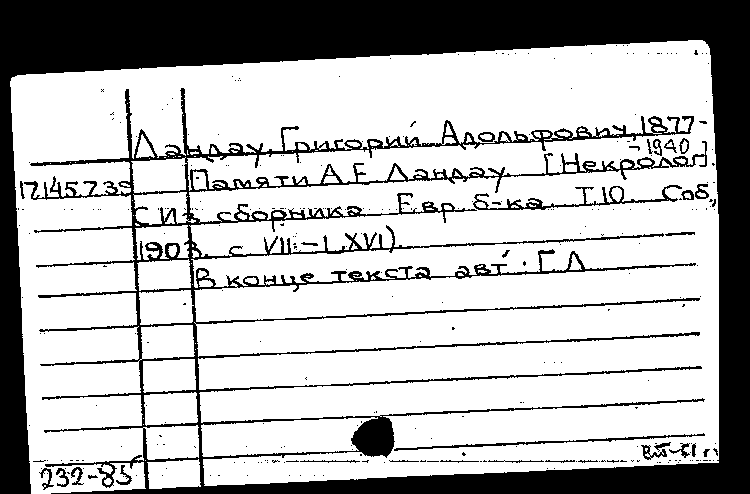 Ландау, Григорий Адольфович, 1877-
-1940
17.145.7.39 Памяти А.Е. Ландау. [Некролог].
(Из сборника Евр. б-ка. Т.10. Спб.,
1903. с. VII-LXVI).
В конце текста авт.: Г.Л.
232-85